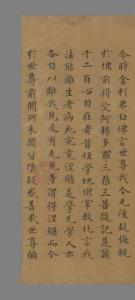 尒時舍利弗白佛言世尊我今无復疑悔親
於佛前得受阿耨多羅三藐三菩提記是諸
千二百心自在者昔住學地佛常教化言我
法能離生老病死究竟涅槃是學无學人亦
各自以離我見及有无見等謂得涅槃而今
於世尊前聞所未聞皆墮疑惑善哉世尊願